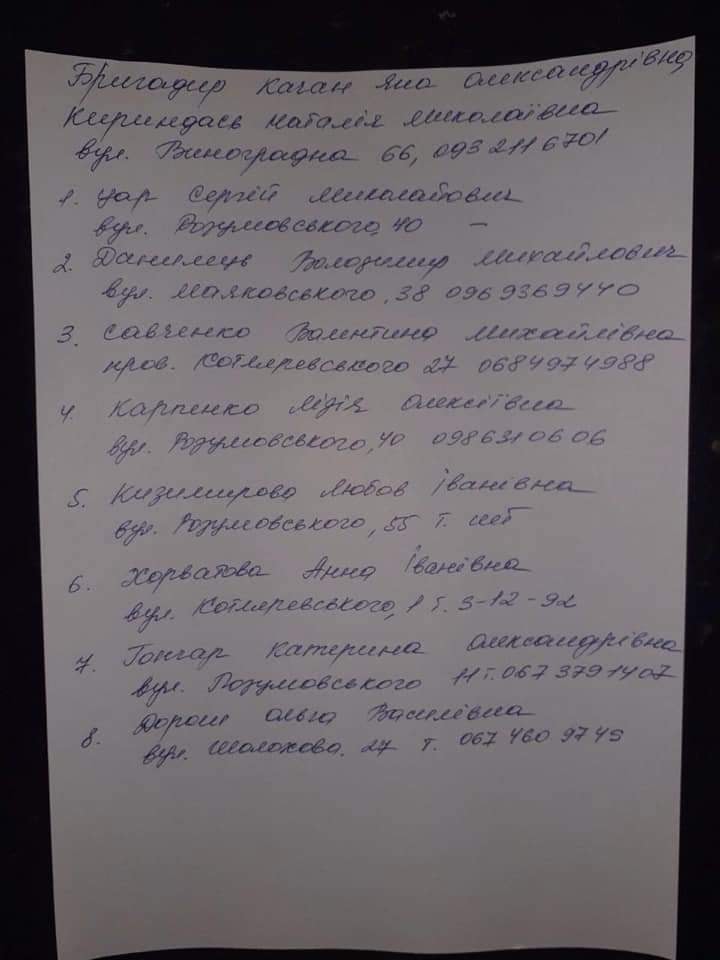 Бригадир Качан Яна Олександрівна
Кириндась Наталія Миколаївна
вул. Виноградна 66, 093 211 6701
1. Цар Сергій Миколайович
вул. Розумовського, 40 –
2. Данилець Володимир Михайлович
вул. Маяковського, 38 0969369440
3. Савченко Валентина Михайлівна
пров. Котляревського 27 0684974988
4. Карпенко Лідія Олексіївна
вул. Розумовського, 40 0986310606
5. Кизимирова Любов Іванівна
вул. Розумовського, 55 т. нет
6. Хорватова Анна Іванівна
вул. Котляревського, 1 т. 3-12-92
7. Гончар Катерина Олександрівна
вул. Розумовського 11 т. 067 3791407
8. Дорош Ольга Василівна
вул. Шолохова. 27 т. 067 460 9745